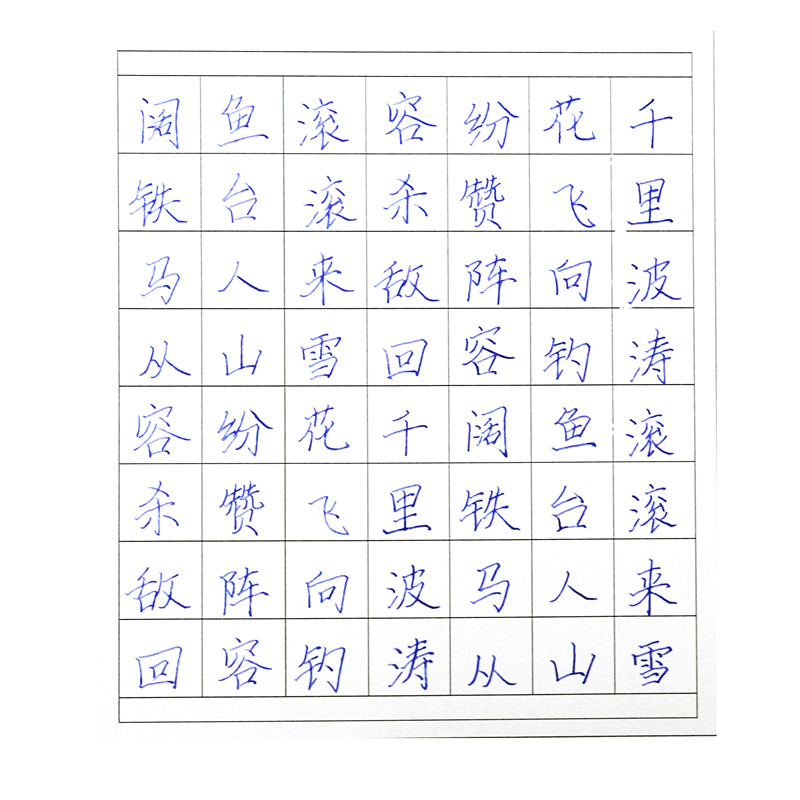 千里波涛滚滚来雪
花飞向钓鱼台人山
纷赞阵容阔铁马从
容杀敌回千里波涛
滚滚来雪花飞向钓
鱼台人山纷赞阵容
阔铁马从容杀敌回